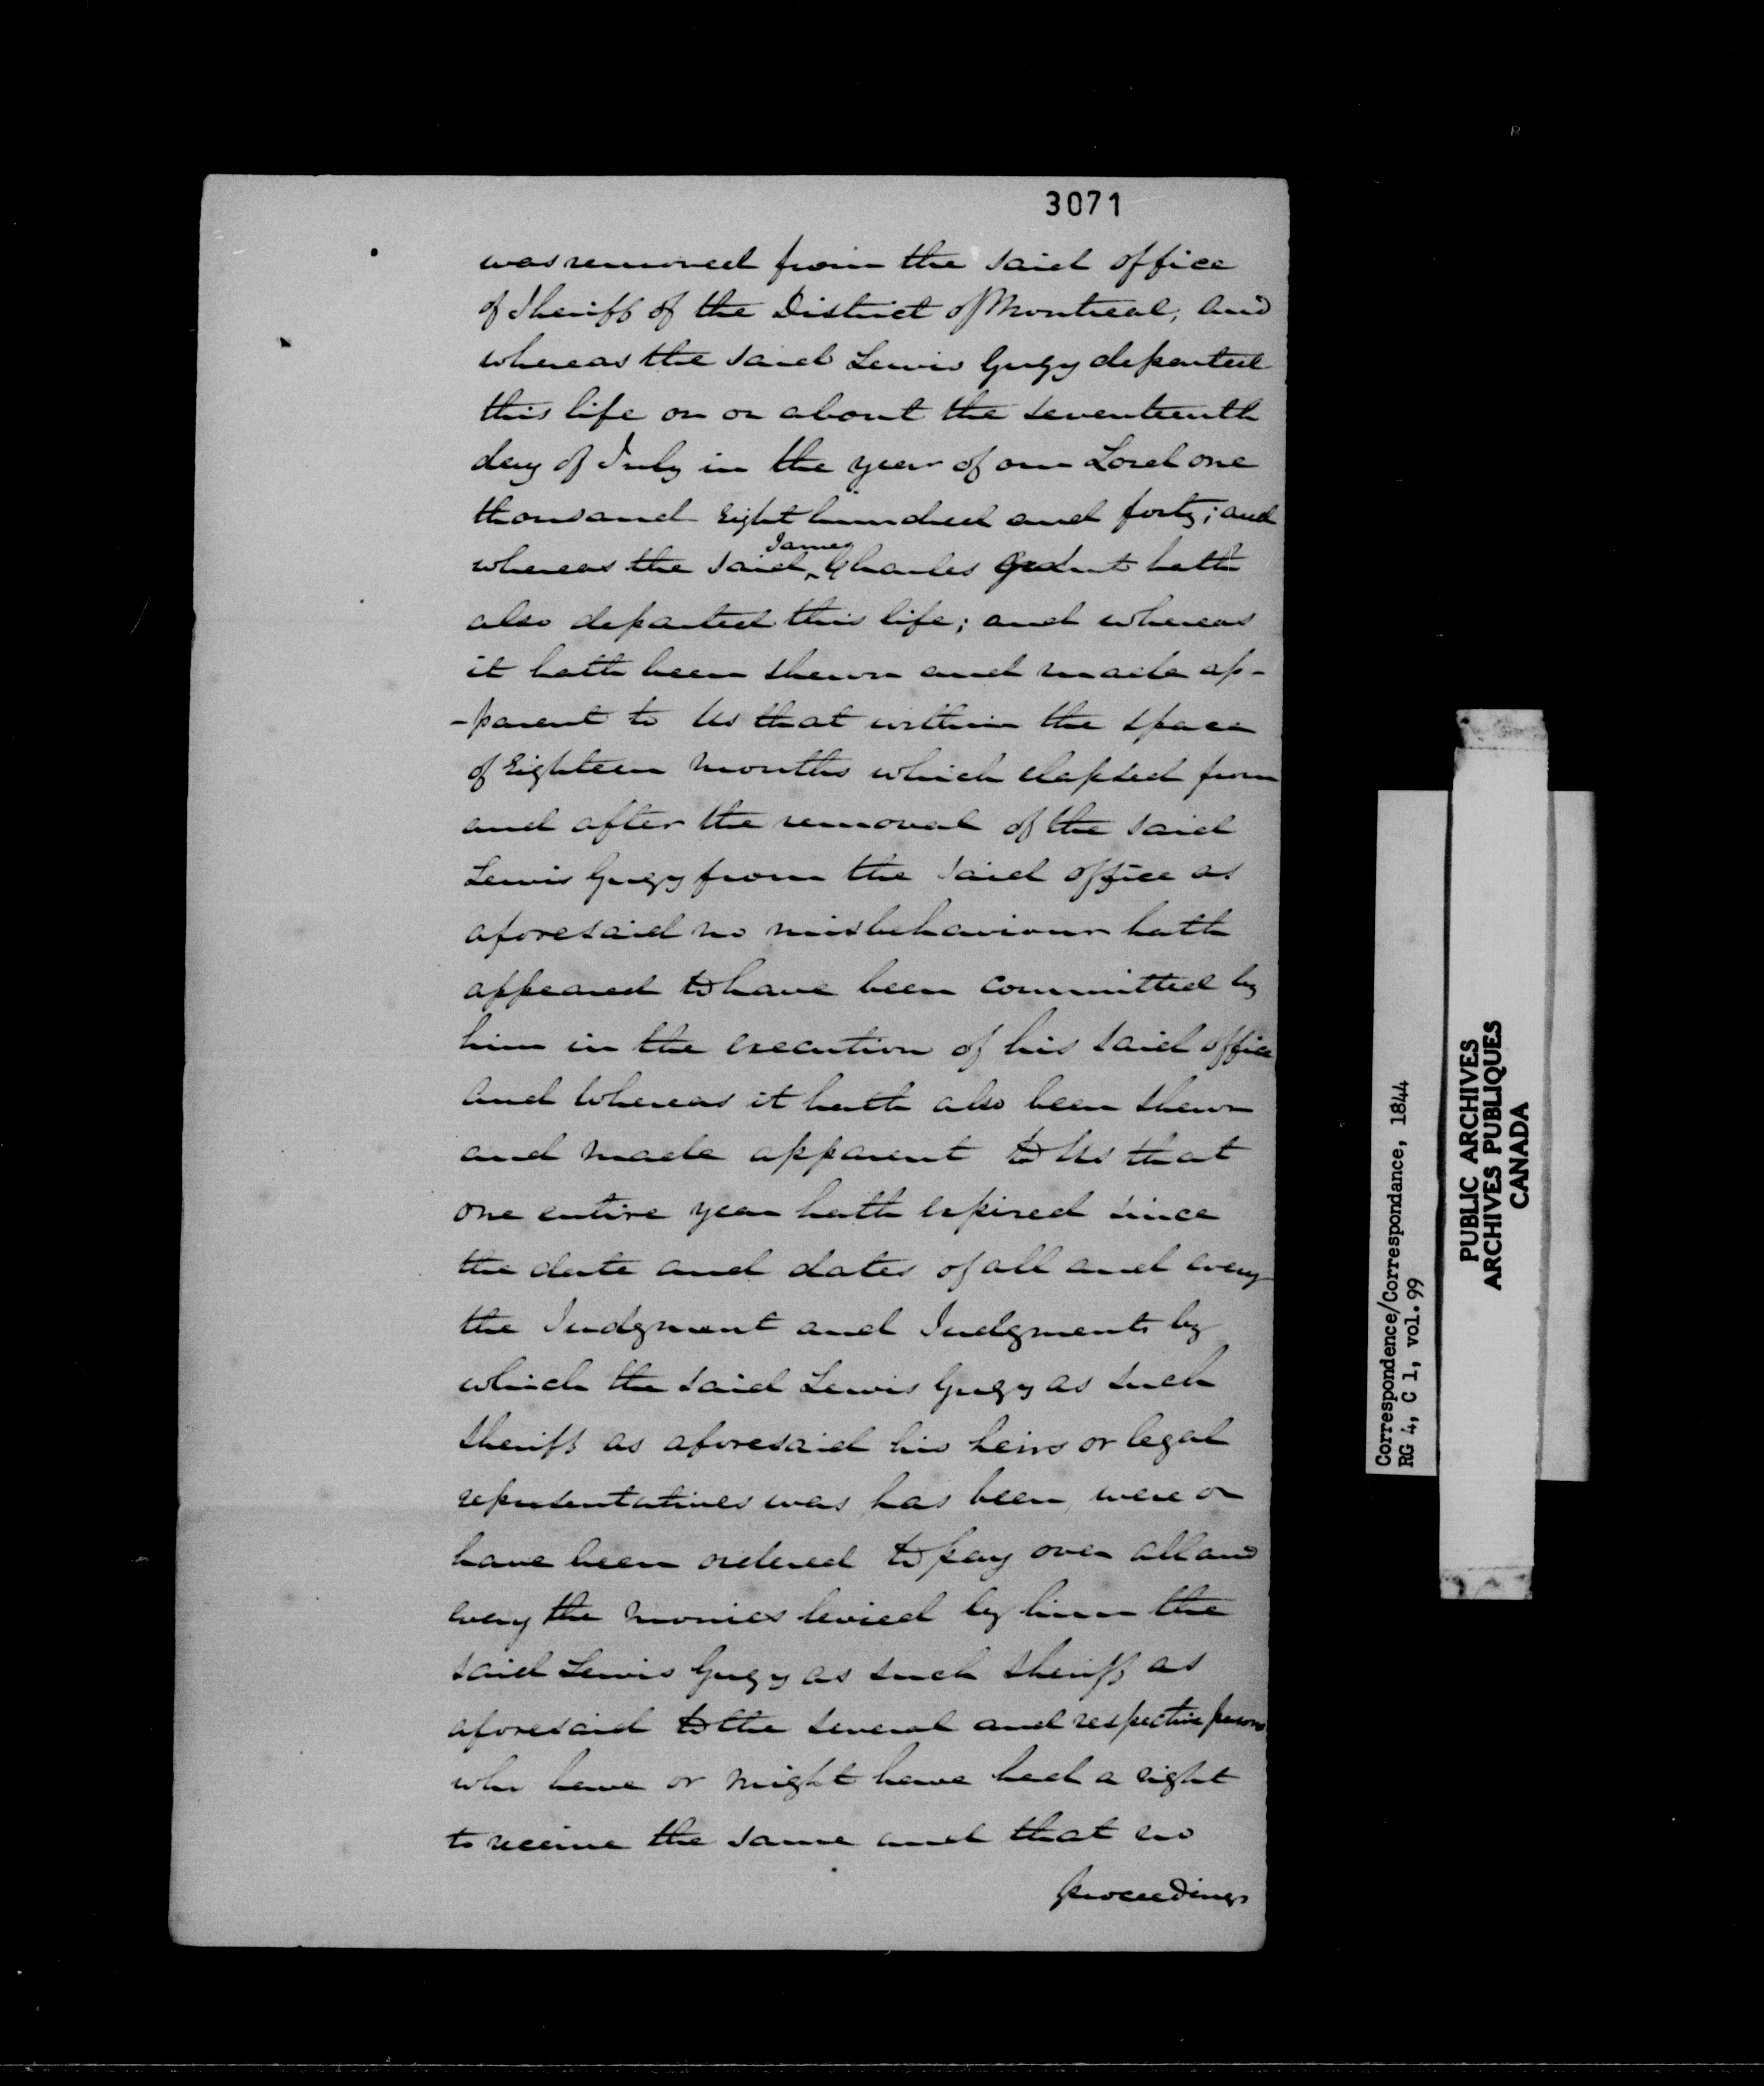 3071
was removed from the said office
of Sheriff of the District of Montreal, and
whereas the said Lewis Gugy departed
this life on or about the seventeenth
day of July in the year of our Lord one
thousand Eight hundred and forty; and
James
whereas the said ^ Charles Grant hath
also departed this life; and whereas
it hath been shewn and made ap-
-parent to Us that within the space
of Eighteen months which elapsed from
and after the removal of the said
Lewis Gugy from the said office as
aforesaid no misbehaviour hath
appeared to have been committed by
him in the execution of his said office
and Whereas it hath also been shewn
and made apparent to Us that
one entire year hath expired since
the date and dates of all and every
the Judgment and Judgments by
which the said Lewis Gugy as such
Sheriff as aforesaid his heirs or legal
representatives was, has been, were or
have been ordered to pay over all and
every the monies levied by him the
said Lewis Gugy as such Sheriff as
aforesaid to the several and respective persons
who have or might have had a right
to receive the same and that no
proceedings
Correspondence/Correspondance, 1844
RG 4, C 1, vol. 99
PUBLIC ARCHIVES
ARCHIVES PUBLIQUES
CANADA